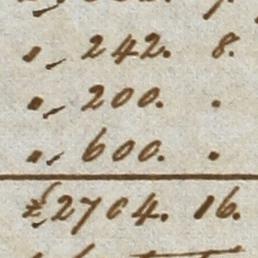 „ 242. 8.
„ 200. .
„ 600. .
£2704. 16.